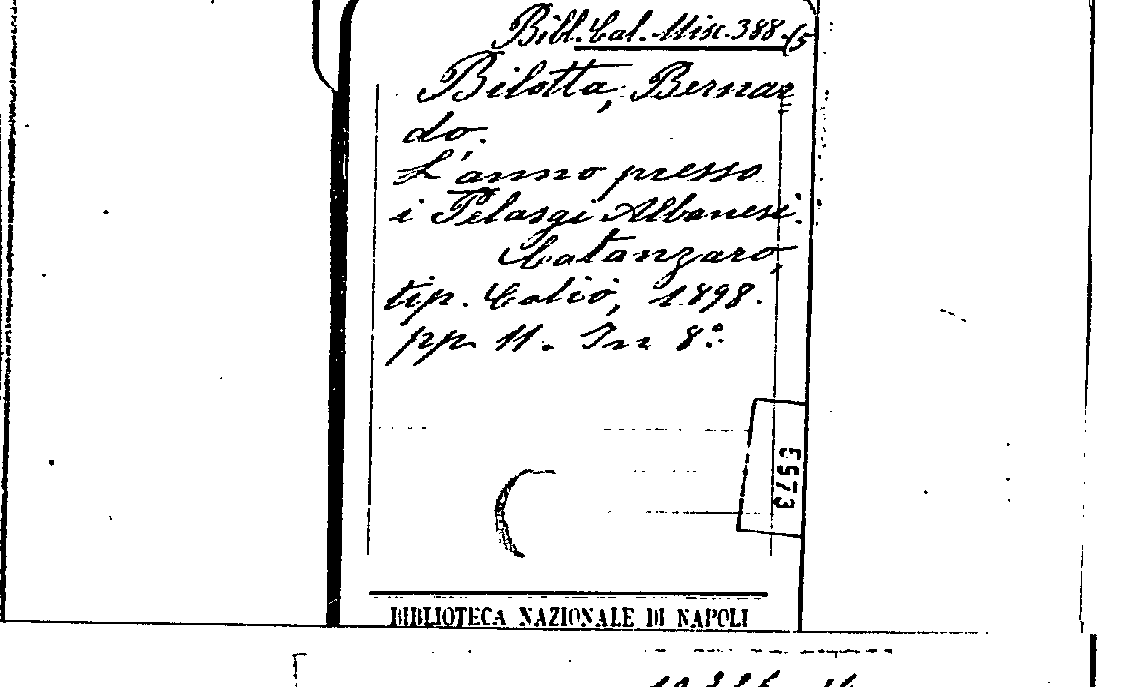 Bibl. Cal. Misc. 388 (5
Bilotta, Bernar=
do.
L'anno presso
i Pelasgi Albanesi.
Catanzaro,
tip. Caliò, 1898.
pp. 11. In 8º.
BIBLIOTECA NAZIONALE DI NAPOLI